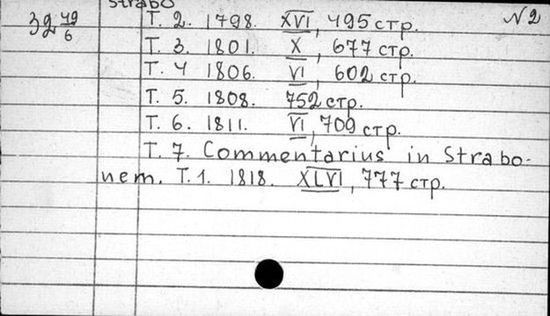 Strabo N 2
39 49/6 Т. 2. 1798. XVI, 495 стр.
Т. 3. 1801. X, 677 стр.
Т. 4 1806. VI, 602 стр.
Т. 5. 1808. 752 стр.
Т. 6. 1811. VI, 709 стр.
Т. 7. Commentarius in Strabo-
nem. Т. 1. 1818. XLVI, 777 стр.